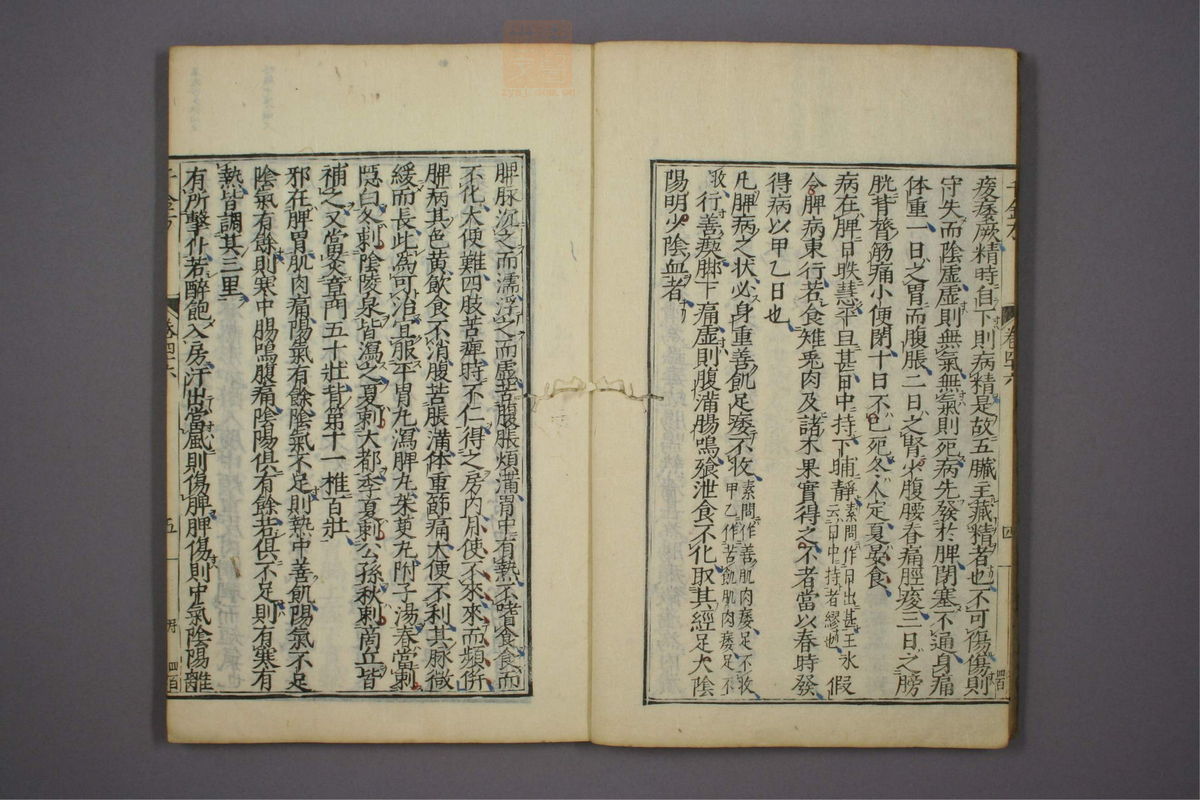 痠痿厥精時自下則病精是故五臟主藏精者也不可傷傷則
守失而陰虛虛則無氣無氣則死病先發於脾閉塞不通身痛
体重一日之胃而腹脹二日之腎少腹腰脊痛脛痠三日之膀
胱背膂筋痛小便閉十日不已死冬人定夏晏食
病在脾日昳慧平旦甚日中持下晡靜素問作日出甚王氷云日中持者繆也假
令脾病東行若食雉兎肉及諸木果實得之不者當以春時發
得病以甲乙日也
凡脾病之状必身重善飢足痿不收素問作善肌肉痿足不收甲乙作苦飢肌肉痿足不
收行善瘈脚下痛虛則腹滿腸鳴飱泄食不化取其經足太陰
陽明少陰血者
卷四十六
四
脾脉沉之而濡浮之而虛苦腹脹煩滿胃中有熱不嗜食食而
不化大便難四肢苦痺時不仁得之房内月使不來來而頻併
脾病其色黄飲食不消腹苦脹滿体重節痛大便不利其脉微
緩而長此為可治宜服平胃丸瀉脾丸茱萸丸附子湯春當刺
隱白冬刺陰陵泉皆瀉之夏刺大都季夏刺公孫秋刺商丘皆
補之又當灸章門五十壮背第十一椎百壮
邪在脾胃肌肉痛陽氣有餘陰氣不足則熱中善飢陽氣不足
陰氣有餘則寒中腸鳴腹痛陰陽俱有餘若俱不足則有寒有
熱皆調其三里
有所擊仆若醉飽入房汗出當風則傷脾脾傷則中氣陰陽離
千金方
卷四十六
五